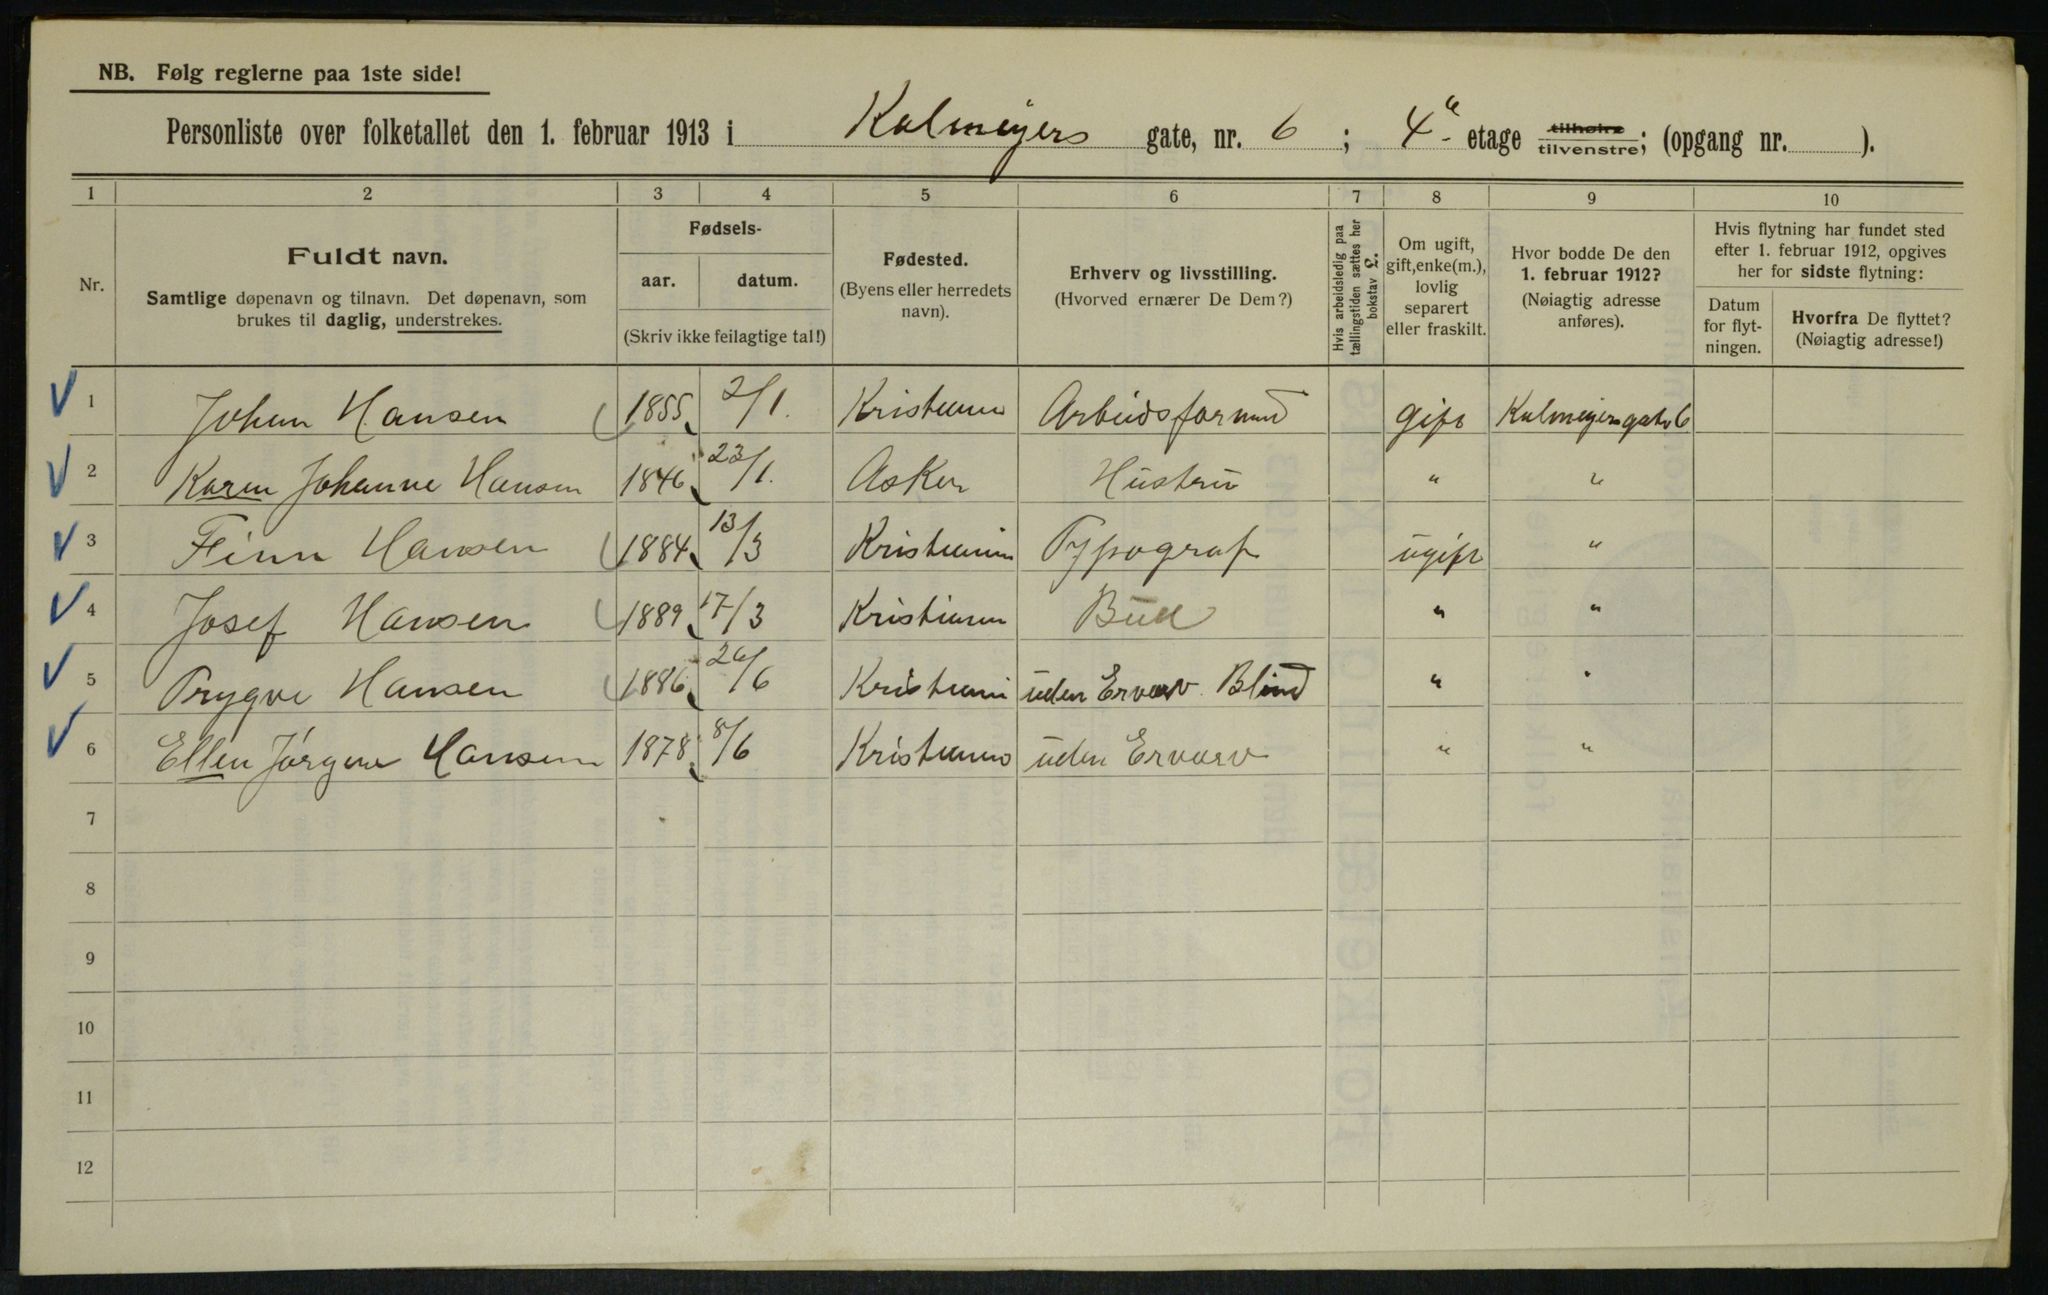 NB. Følg reglerne paa 1ste side!
Personliste over folketallet den 1. februar 1913 i Kalmeyers gate, nr. 6 ; 4de etage tilhøire tilvenstre; (opgang nr. ).
1 2 3 4 5 6 7 8 9 10
Nr.
Fuldt navn.
Samtlige døpenavn og tilnavn. Det døpenavn, som
brukes til daglig, understrekes.
Fødsels-
aar. datum.
(Skriv ikke feilagtige tal!)
Fødested.
(Byens eller herredets
navn).
Erhverv og livsstilling.
(Hvorved ernærer De Dem?)
Hvis arbeidsledig paa
tællingstiden sættes her
bokstav L.
Om ugift,
gift, enke(m.),
lovlig
separert
eller fraskilt.
Hvor bodde De den
1. februar 1912?
(Nøiagtig adresse
anføres).
Hvis flytning har fundet sted
efter 1. februar 1912, opgives
her for sidste flytning:
Datum
for flyt-
ningen.
Hvorfra De flyttet?
(Nøiagtig adresse!)
1 Johan Hansen 1855 2/1. Kristiania Arbeidsformand gift Kalmeyersgate 6
2 Karen Johanne Hansen 1846 23/1. Asker Hustru " "
3 Finn Hansen 1884 13/3 Kristiania Typograf ugift "
4 Josef Hansen 1889 17/3 Kristiania Bud " "
5 Trygve Hansen 1886 26/6 Kristiania uden Erverv Blind " "
6 Ellen Jørgine Hansen 1878 8/6 Kristiania uden Erverv " "
7
8
9
10
11
12